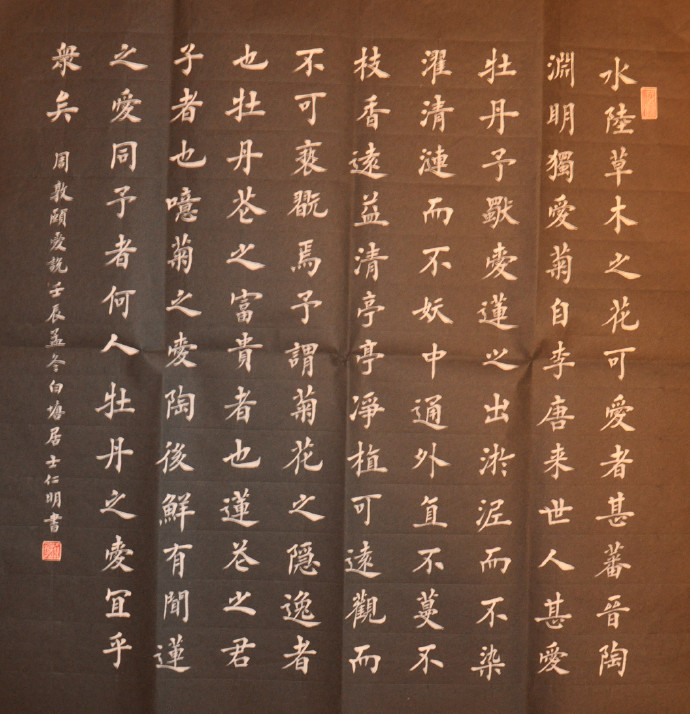 水陸草木之花可愛者甚蕃晉陶
淵明獨愛菊自李唐来世人甚愛
牡丹予獸愛蓮之出淤泥而不染
濯清漣而不妖中通外直不蔓不
枝香遠益清亭亭凈植可遠觀而
不可褻翫焉予謂菊花之隠逸者
也牡丹花之富貴者也蓮花之君
子者也噫菊之愛陶後鮮有聞蓮
之愛同予者何人牡丹之愛宜乎
衆矣
周敦頤愛説壬辰孟冬白鳩居士仁明書